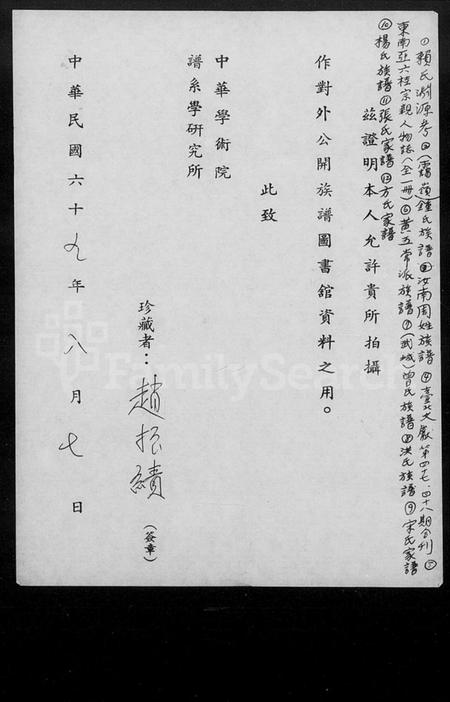 ①賴氏淵源考②(霞嶺)鍾氏族譜③汝南周姓族譜④臺北文獻第四七、四十八期合刊⑤
東南亞六桂宗親人物誌(全一冊)⑥黃五常派族譜⑦(武城)曾氏族譜⑧洪氏族譜⑨宋氏家譜
⑩楊氏族譜⑪張氏家譜⑫方氏家譜
茲證明本人允許貴所拍攝
作對外公開族譜圖書館資料之用。
此致
中華學術院
譜系學研究所
珍藏者：趙振績(簽章)
中華民國六十九年八月七日
FamilySearch